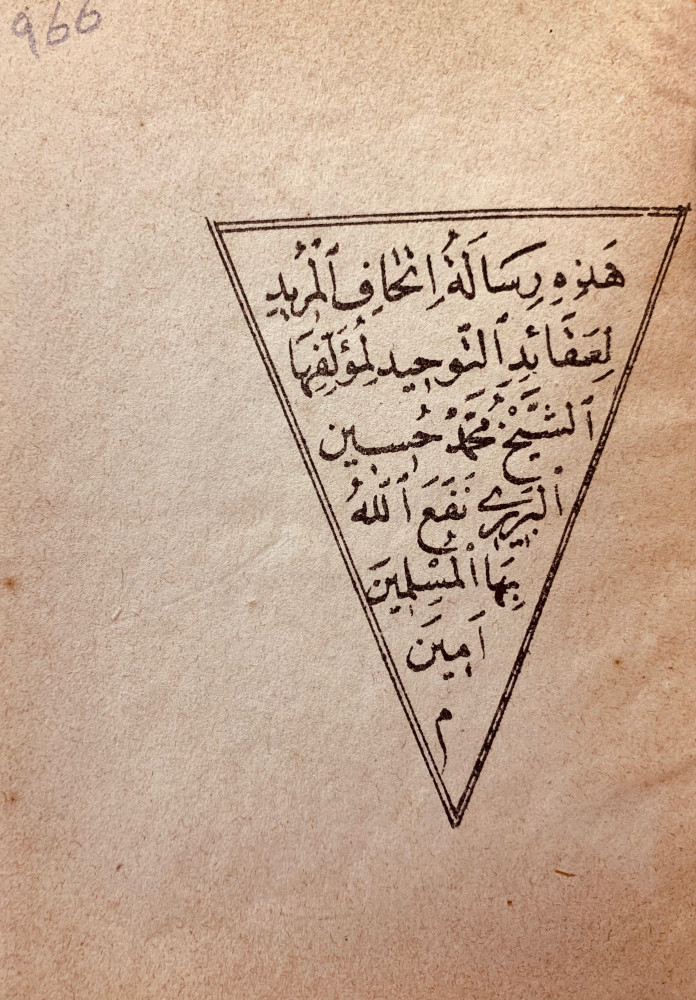 966
هَذِهِ رِسَالَةُ اِتْحَافِ ٱلْمُرِيدِ
لِعَقَائدِ ٱلتَّوحِيد لِمُؤَلِّفِهَا
ٱلشَّيْخْ مُحَمَّدْ حُسَين
ٱلْبَرْبَرِے نَفَعَ ٱللّٰهُ
بِهَا ٱلْمُسْلِمِينَ
اَمِينَ
م